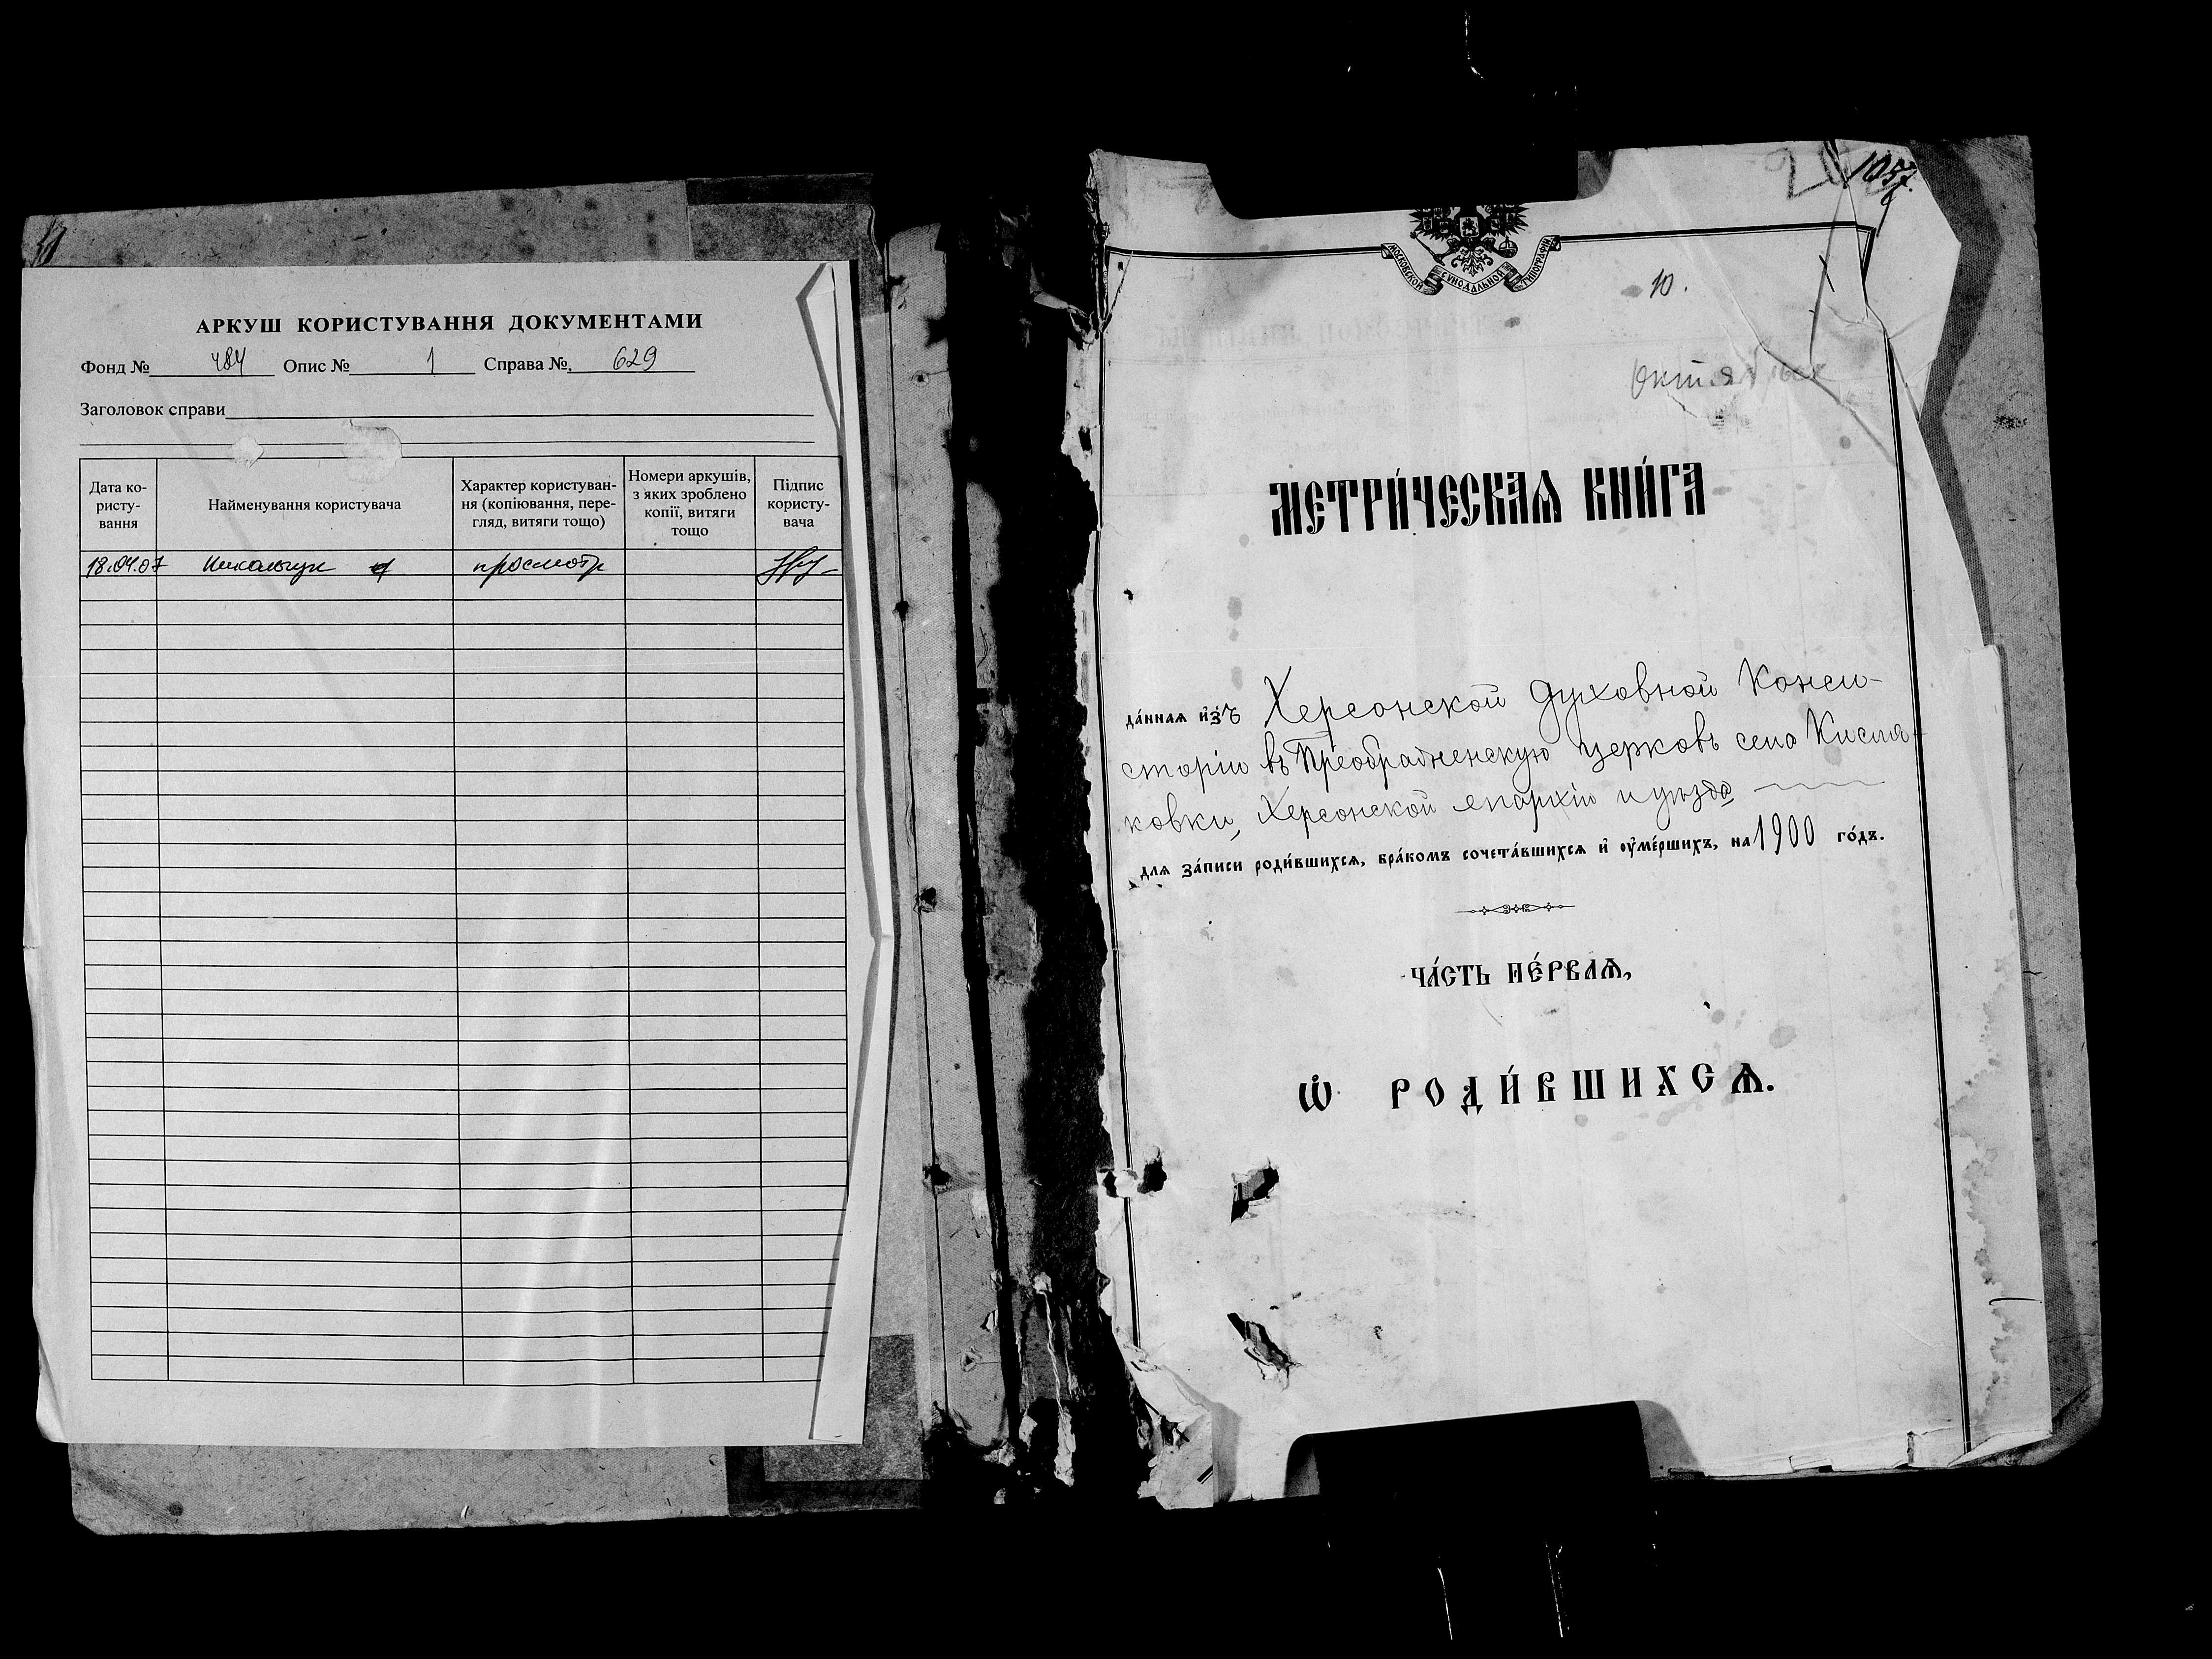 АРКУШ КОРИСТУВАННЯ ДОКУМЕНТАМИ
Фонд № 484 Опис № 1 Справа № 629
Заголовок справи
Дата ко-
ристу-
вання
Найменування користувача
Характер користуван-
ня (копіювання, пере-
гляд, витяги тощо)
Номери аркушів,
з яких зроблено
копії, витяги
тощо
Підпис
користу-
вача
18.04.07 просмотр
1057.
МОСКОВСКОЙ СѴНОДАЛЬНОЙ ТИПОГРАФІИ
10.
МЕТРИ́ЧЕСКАѦ КНИ́ГА
да́ннаѧ и҆зъ Херсонской Духовной Конси-
сторіи въ Преображенскую церковь села Кисля-
ковки, Херсонской епархіи и уѣзда
длѧ за́писи роди́вшихсѧ, бра́комъ сочета́вшихсѧ и҆ оу҆ме́ршихъ, на 1900 го́дъ.
ЧА́СТЬ ПЕ́РВАѦ,
Ѡ҆ РОДИ́ВШИХСѦ.